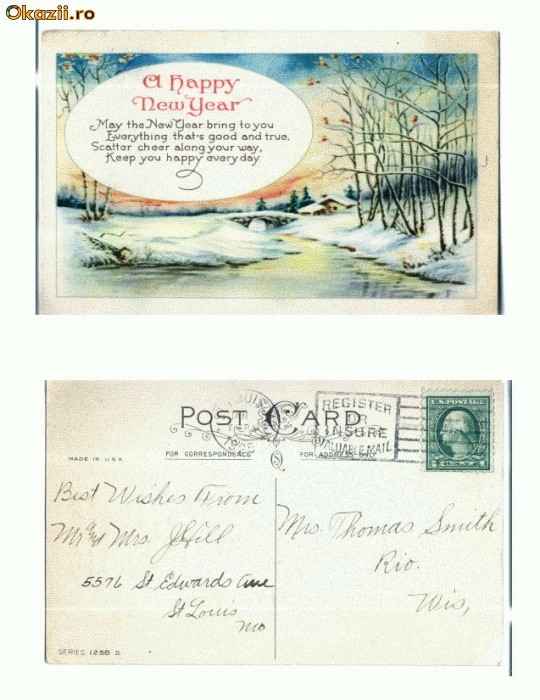 Okazii.ro
A Happy
New Year
May the New Year bring to you
Everything that's good and true,
Scatter cheer along your way,
Keep you happy every day.
POST CARD
REGISTER
OR
INSURE
VALUABLE MAIL
U.S. POSTAGE
MADE IN U.S.A.
FOR CORRESPONDENCE
FOR ADDRESS ONLY
Best Wishes From
Mr and Mrs. J Hill
5576 St Edwards Ave
St Louis
Mo
Mrs. Thomas Smith
Rio.
Wis,
SERIES 125B D